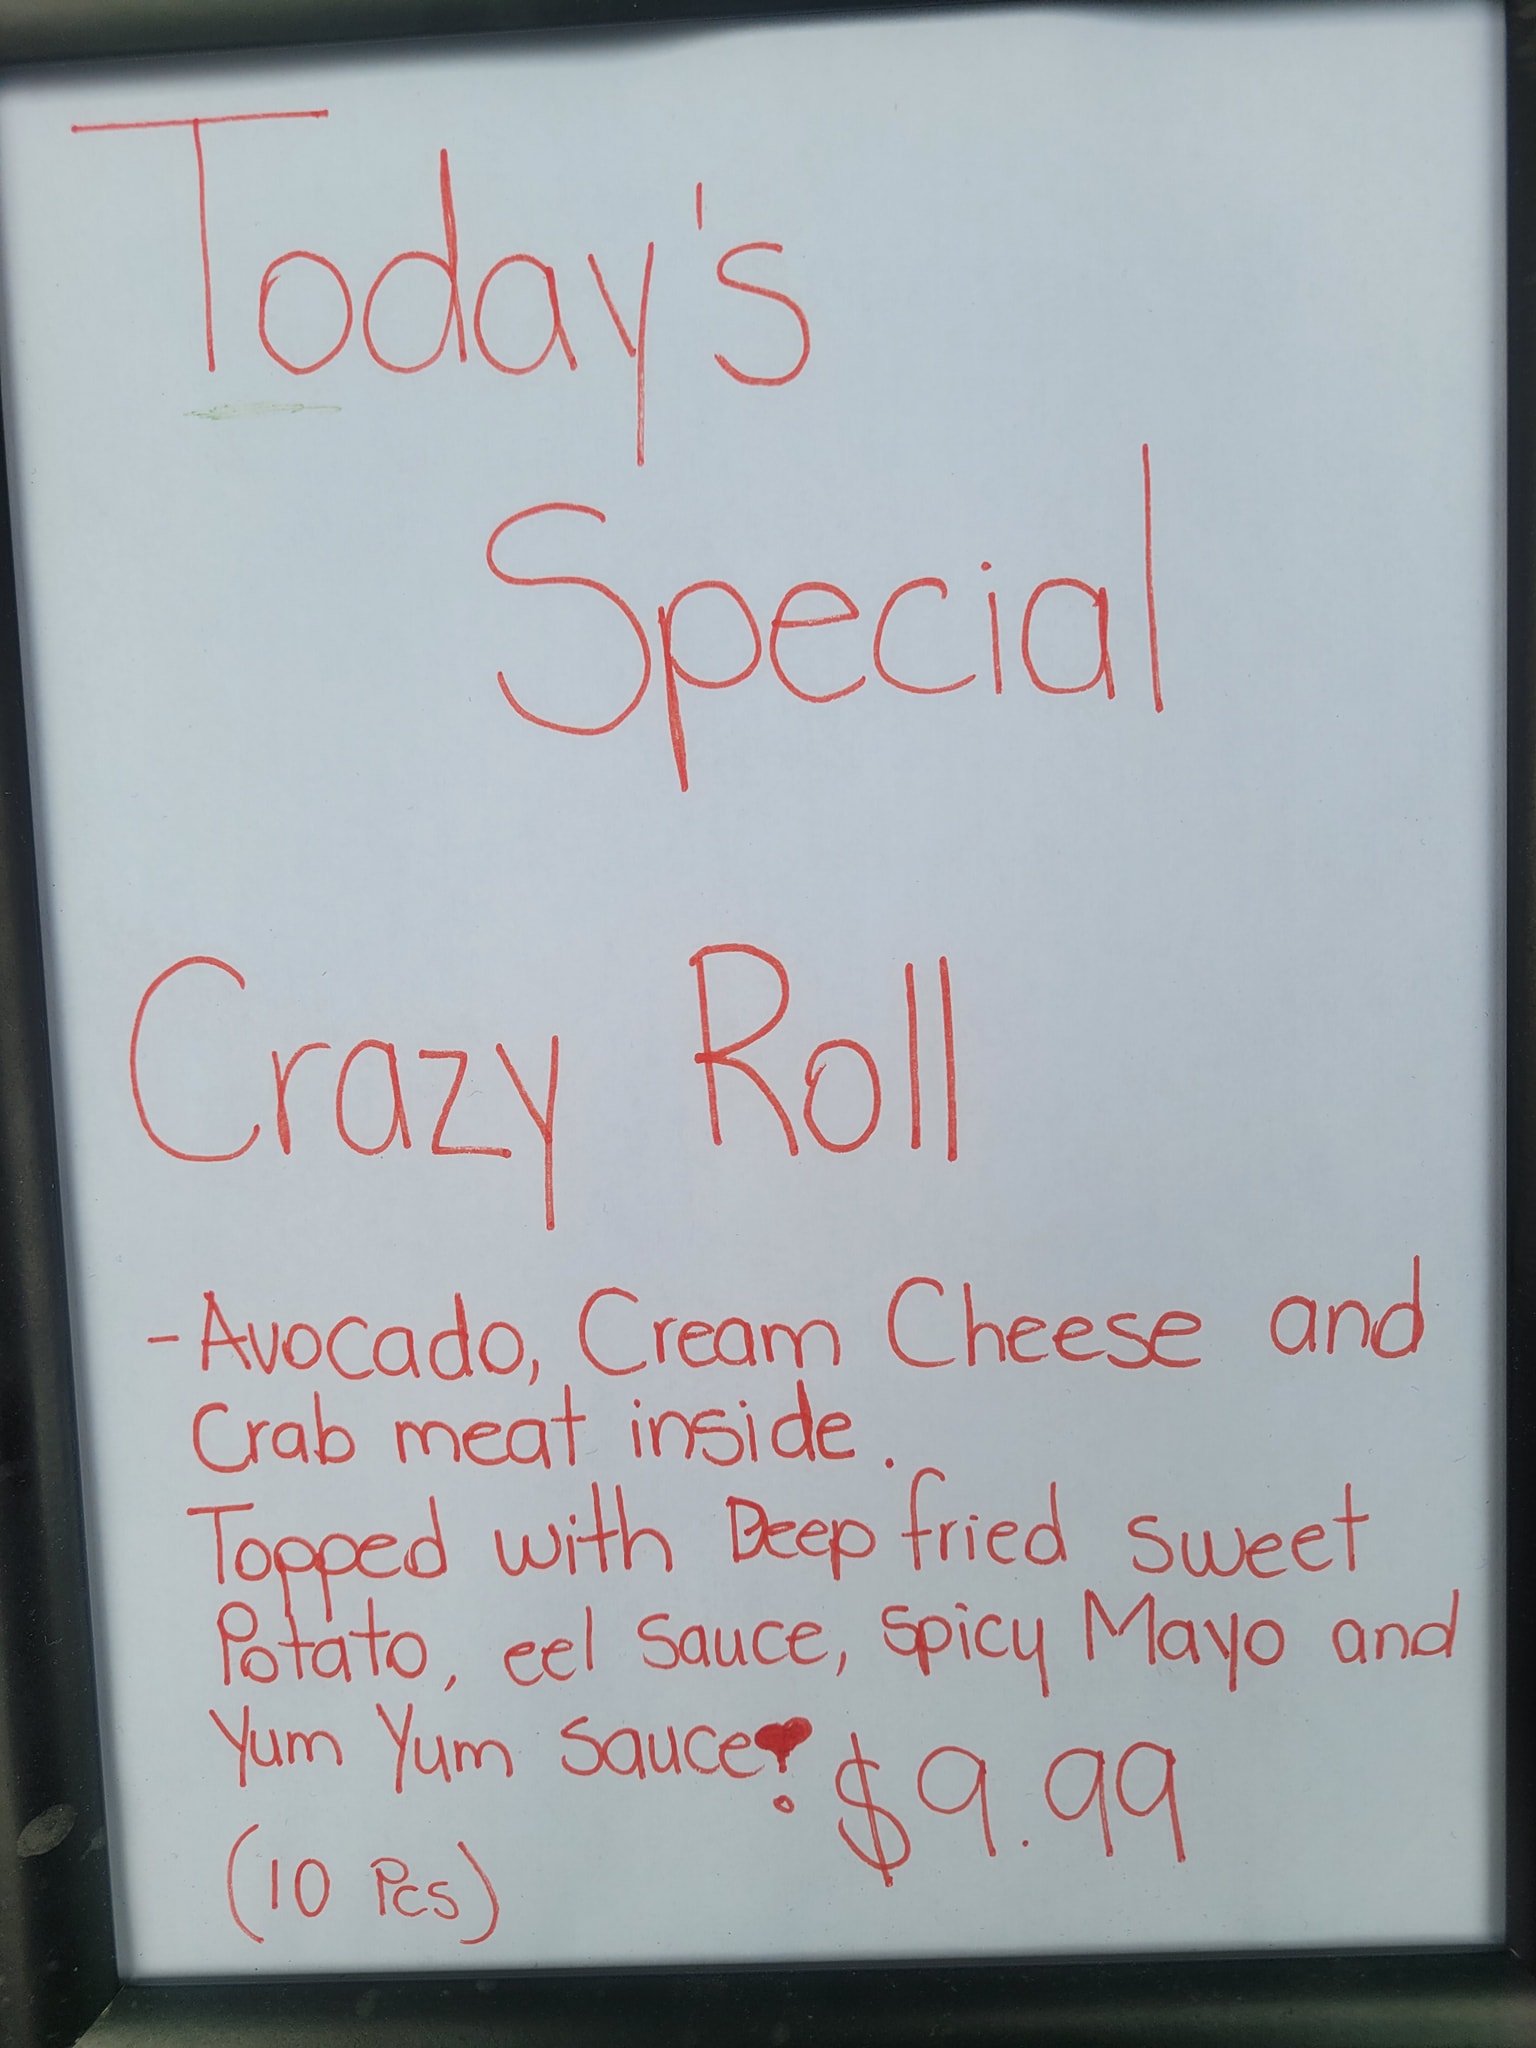 Today's
Special
Crazy Roll
- Avocado, Cream Cheese and
Crab meat inside.
Topped with Deep fried sweet
Potato, eel Sauce, spicy Mayo and
Yum Yum Sauce❣ $9.99
(10 Pcs)